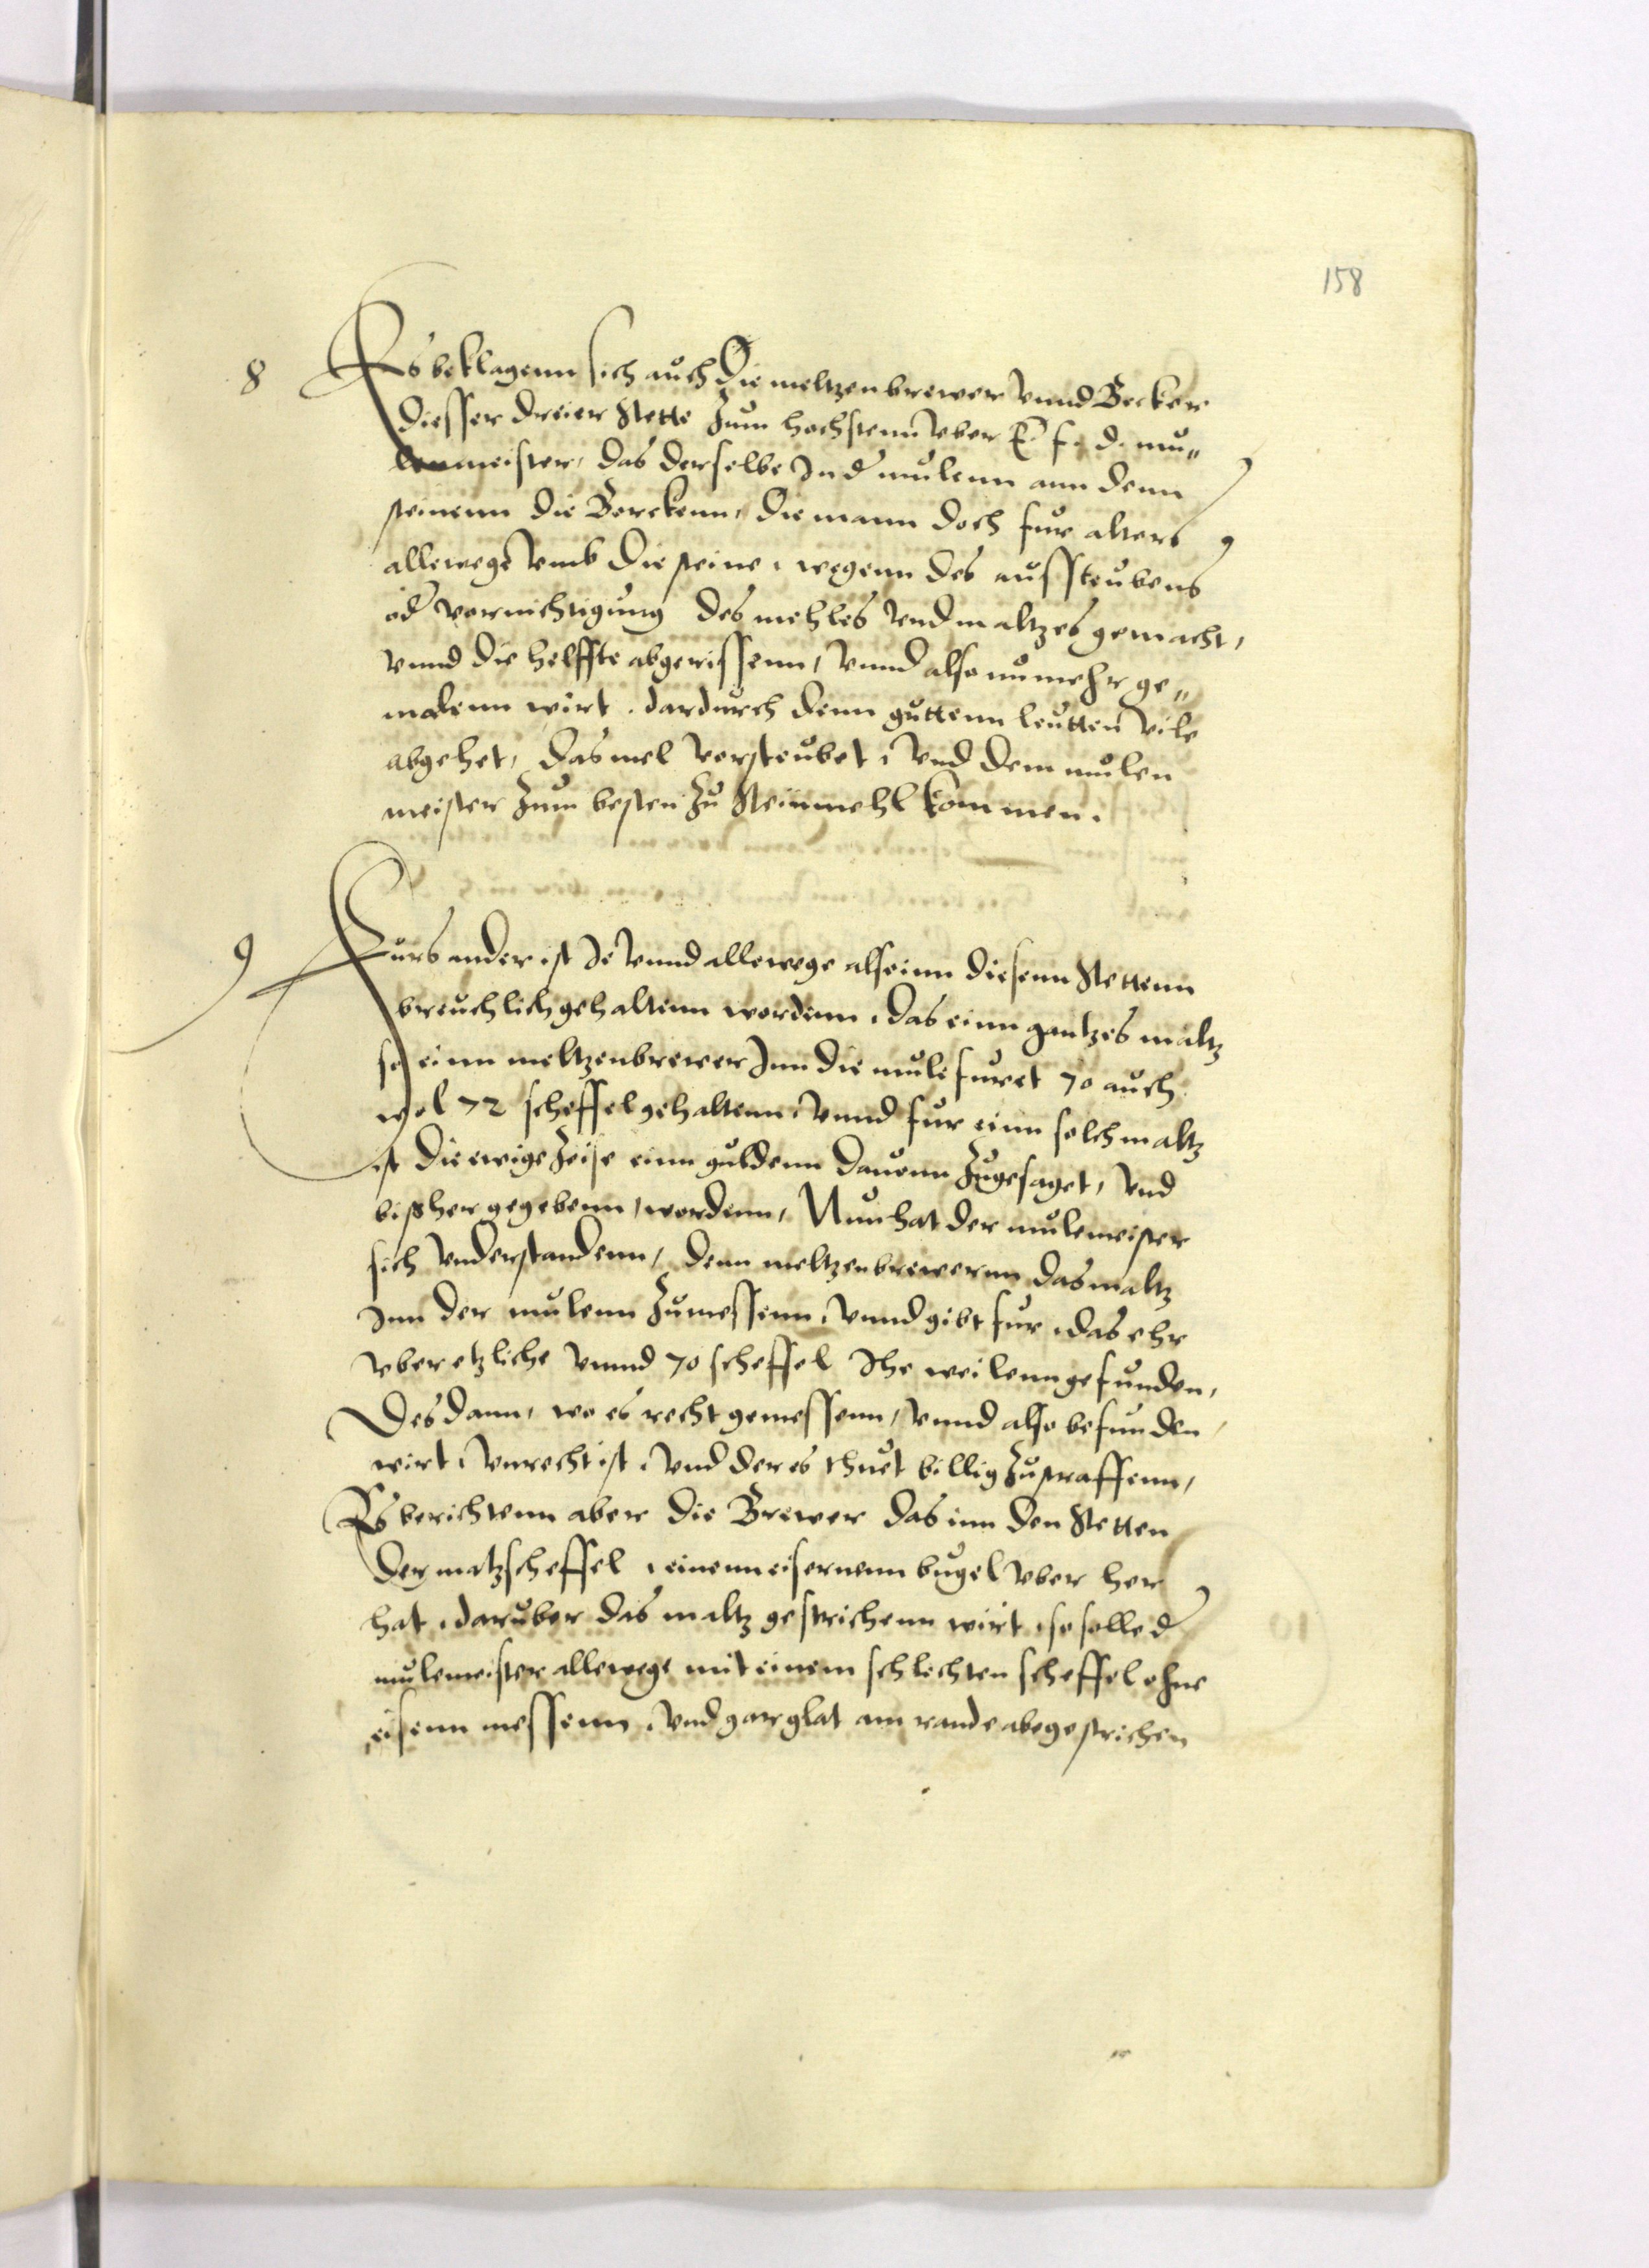 158
8 Es beklagenn sich auch die meltzenbrewer vnnd Becker
diesser dreier Stette zum hochstenn vber E. f. d. mu„
lenmeister, das derselbe In d mulenn ann denn
steinenn die Borckenn, die mann doch fur alters
allewege vmb die steine, wegenn des aufsteubens
od vornichtigung des mehles vnd maltzes gemacht,
vnnd die helffte abgerissenn, vnnd also nu mehr ge„
malenn wirt, dardurch denn guttenn leutten vile
abgehet, das mel versteubet, vnd dem mulen
meister zum besten zu Steinmehl kommen.
9 Furs ander ist Je vnnd allewege alhie inn diesenn Stettenn
breuchlich gehaltenn wordenn, das einn gantzes maltz
so einn meltzenbrewer Inn die mule furet 70 auch
wol 72 scheffel gehaltenn, vnnd fur einn solch maltz
ist die ewige Zeise einn guldenn dauonn zugesaget, vnd
bißher gegebenn, wordenn, Nun hat der mulemeister
sich vnderstandenn, denn meltzenbrewernn das maltz
Inn der mulenn zumessenn, vnnd gibt fur, das ehr
vber etzliche vnnd 70 scheffel Jhe weilenn gefunden,
Des dann, wo es recht gemessenn, vnnd also befunden
wirt, vnrecht ist, vnd der es thuet billig zustraffenn,
Es berichtenn aber die Brewer das inn den Stetten
der matzscheffel, einenn eisernenn bugel vber her
hat, daruber das maltz gestrichenn wirt, so solle d
mulemeister allewege mit einem schlechten scheffel ohne
eisenn messenn, vnd gar glat am rande abegestrichen